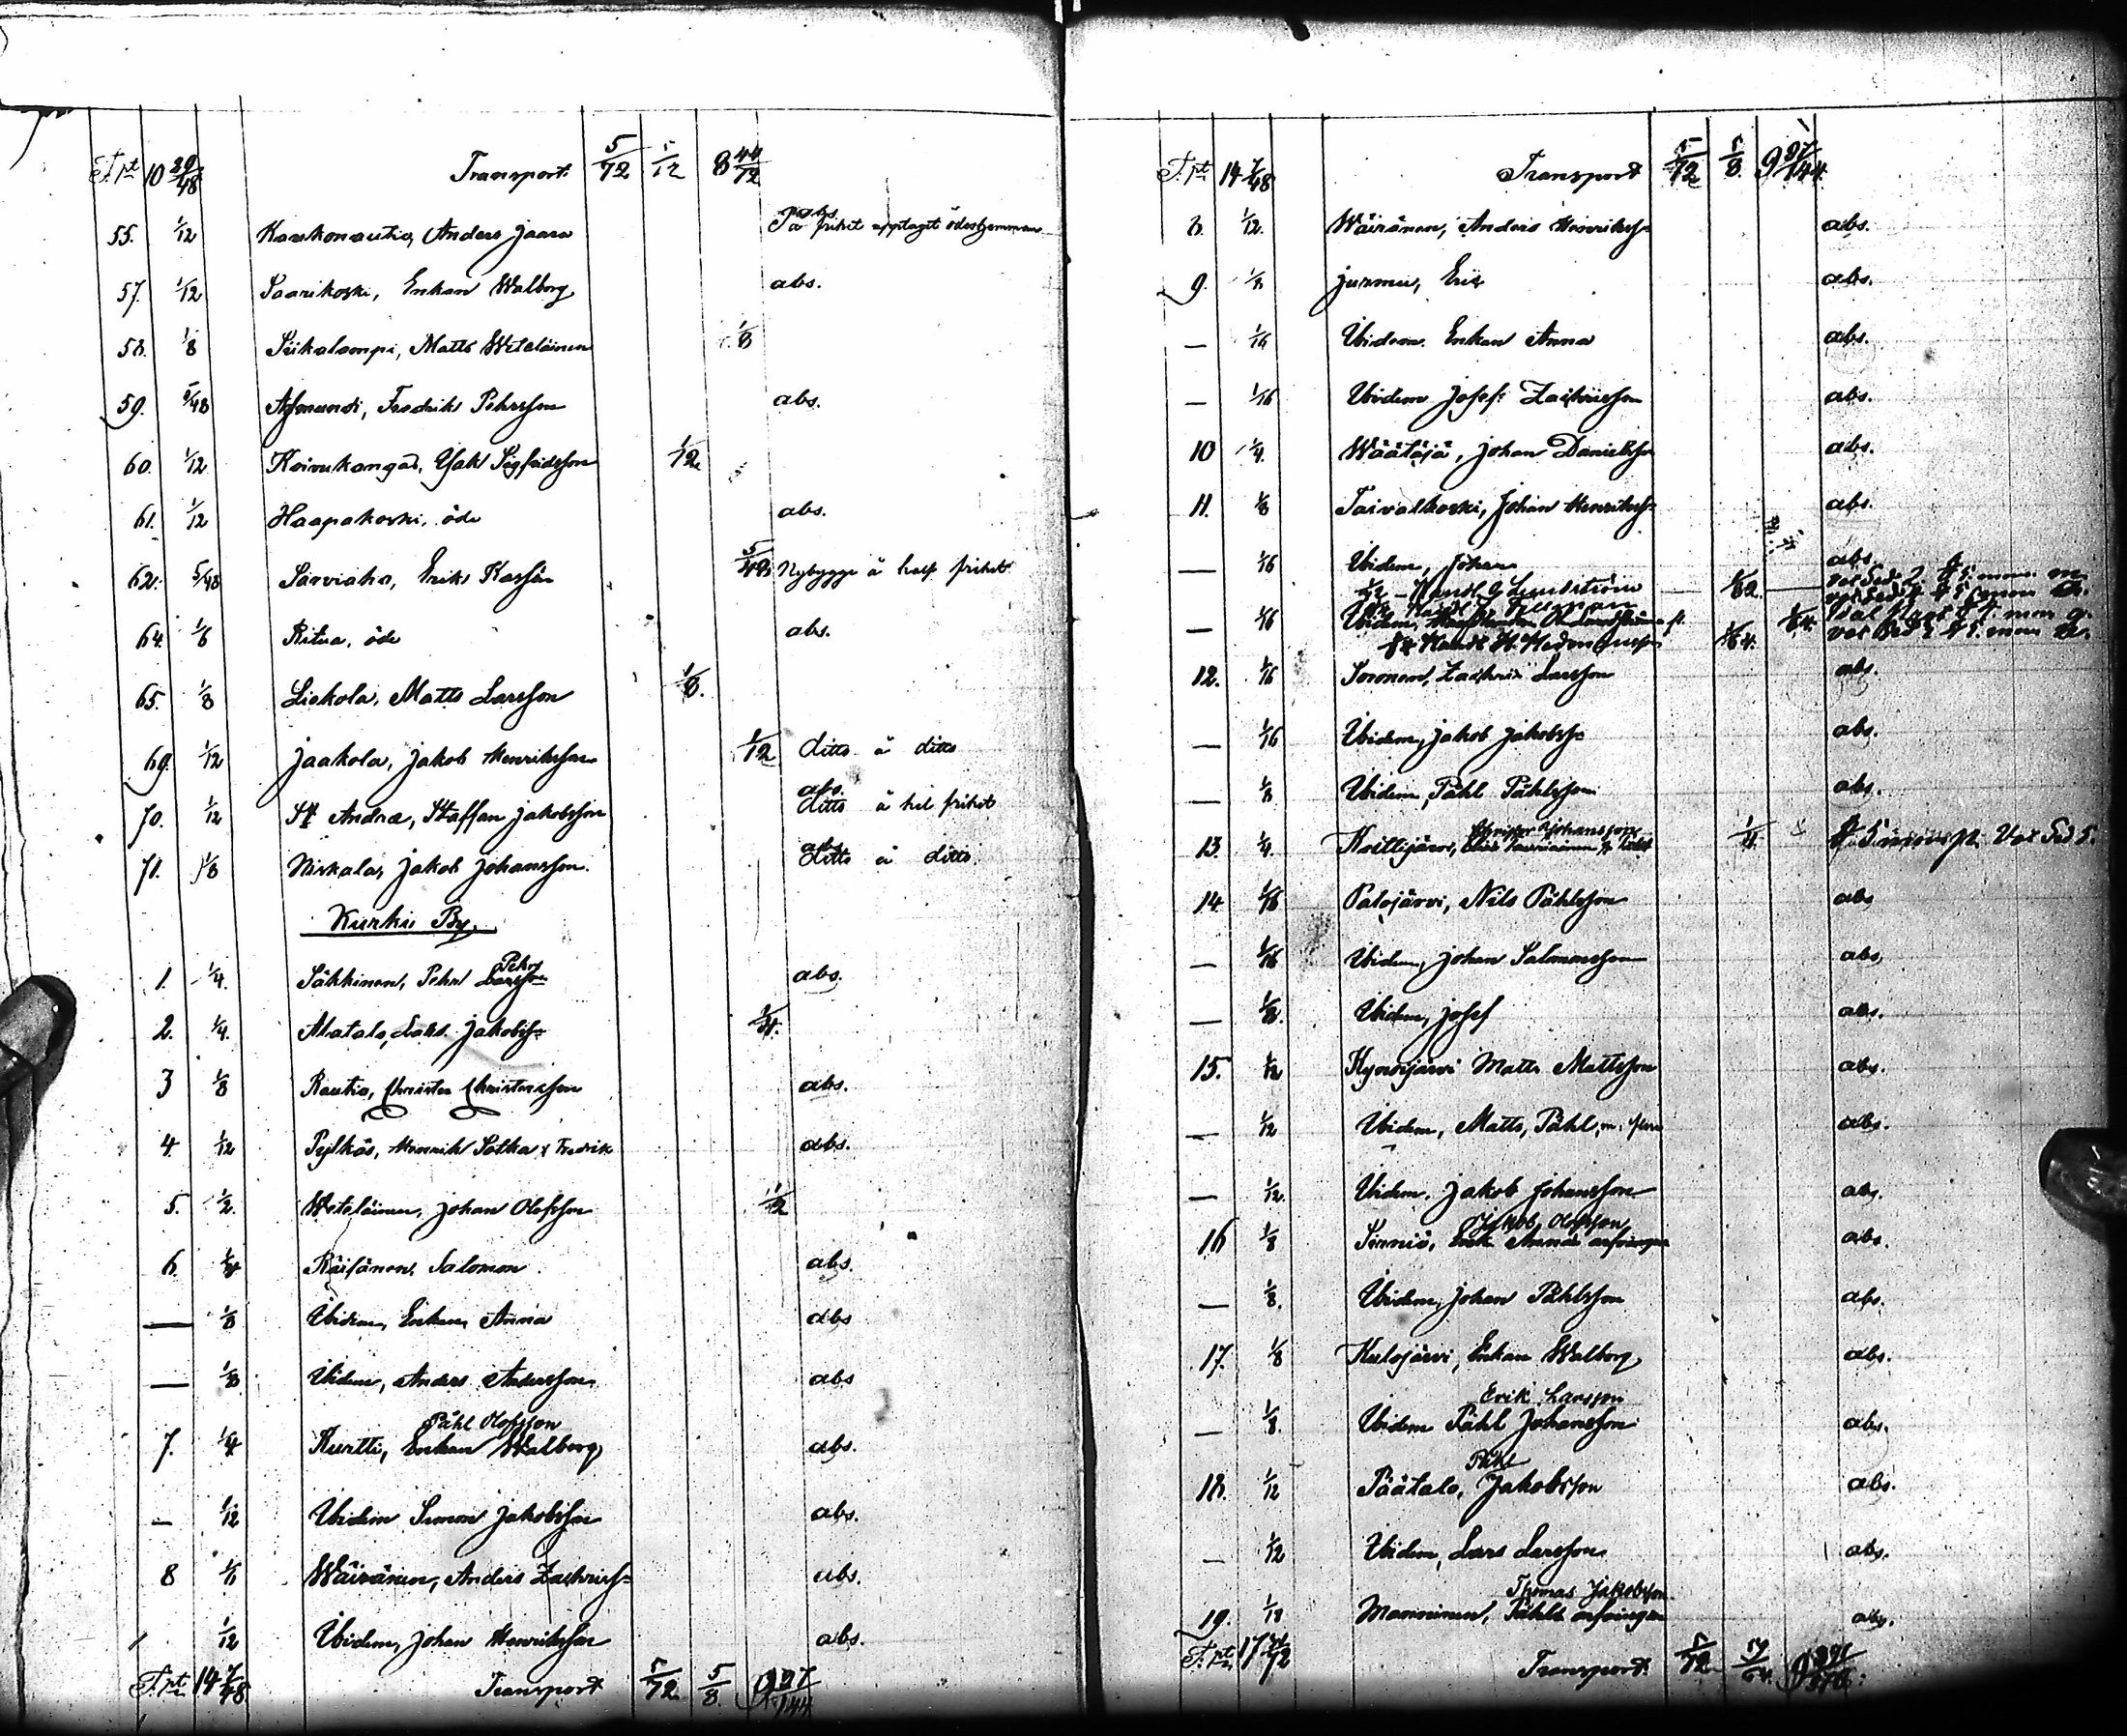 T.pt 10 29/48 Transport 5/72 1/12 8 44/72
abs.
55. 1/12 Kaukonautio, Anders Jaara På frihet upptaget ödeshemman
57. 1/12 Saarikoski, Enkan Walborg abs.
58. 1/8 Siikalompi, Matts Weteläinen 1/8
59. 5/48 Asmundi, Fredrik Pehrsson abs.
60. 1/12 Koivukangas, Isak Sigfridsson 1/12
61. 1/12 Haapakoski, öde abs.
62. 5/48 Särviaho, Erik 5/48 Nybygge å half frihet
64. 1/6 Ritua, öde abs.
65. 1/8 Liekola, Matts Larsson 1/8.
69. 1/12 Jaakola, Jakob Henriksson 1/12 ditto å ditto
abs.
70. 1/12 St Andræ, Staffan Jakobsson ditto å hel frihet
abs.
71. 1/8 Niskala, Jakob Johansson. ditto å ditto
Kurkis By.
Pehrs
1. 1/4. Säkkinen, Pehr Larsson abs.
2. 1/4. Matalo, Jakobss. 1/4.
3 1/8 Rautio, Christer Christersson abs.
4 1/12 Pylkäs, Henrik Sotka & Fredrik abs.
5. 1/2. Weteläinen, Johan Olofsson 1/2
6. 1/4 Räisänen, Salomon abs.
— 1/8 Ibidem, Enkan Anna abs
— 1/8 Ibidem, Anders Andersson abs
Påhl Olofsson
7. 1/4 Kurtti, Enkan Walborg abs.
— 1/12 Ibidem Simon Jakobsson abs.
8 1/6 Wäiränen, Anders Zachriss. abs.
1/12 Ibidem, Johan Henriksson abs.
T.pt 14 7/48 Transport 5/72 5/8 9 97/144
T.pt 14 7/48 Transport 5/72 5/8 9 97/144.
8. 1/12. Wäiränen, Anders Henrikss. abs.
9. 1/8 Jurmu, Eric abs.
— 1/16 Ibidem Enkan Anna abs.
— 1/16 Ibidem Josef Zachrisson abs.
10 1/4. Wäätäjä, Johan Danielsson abs.
11. 1/8 Taivalkoski, Johan Henrikss. abs.
— 1/16 Ibidem, Johan abs.
Handl. G Lundström 1/32
— 1/16 Ibidem,
1/64.
12. 1/16 Soronen, Zachris Larsson abs.
— 1/16 Ibidem, Jakob Jakobss. abs.
— 1/8 Ibidem, Påhl Påhlsson abs.
Christer Johansson
13. 1/4. Koittijärvi, 1/4
14. 1/16 Palojärvi, Nils Påhlsson abs
— 1/16 Ibidem, Johan Salomonsson abs.
— 1/8. Ibidem, Josef abs.
15. 1/12 Kynsijärvi Matts Mattsson abs.
— 1/12 Ibidem, Matts, Påhl, m. flera abs.
— 1/12. Ibidem, Jakob Johansson abs.
Jakob Olofsson
16 1/8 Sirniö, Enk. Annas arfvingar abs.
— 1/8. Ibidem, Johan Påhlsson abs.
17. 1/8 Kulojärvi, Enkan Walborg abs.
Erik Larsson
— 1/8. Ibidem Påhl Johansson abs.
Påhl
18. 1/12 Päätalo, Jakobsson abs.
— 1/12 Ibidem, Lars Larsson abs.
Thomas Jakobsson
19. 1/18 Manninen, Påhls arfvingar abs.
T.pt 17 Transport. 5/72